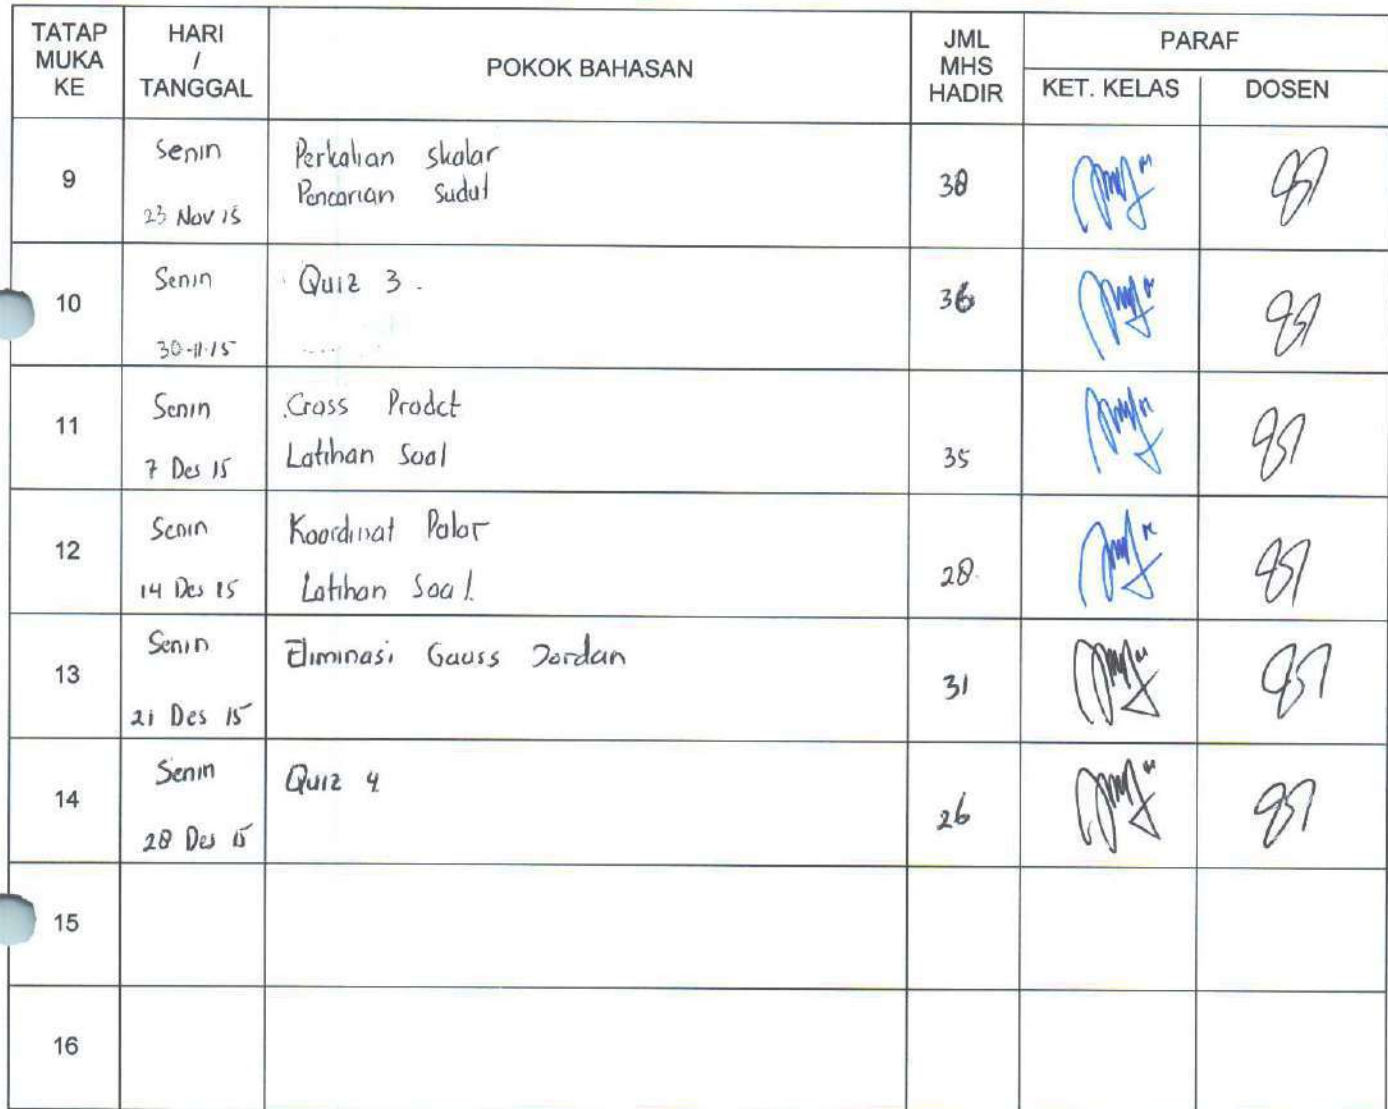 TATAP MUKA KE
HARI / TANGGAL
POKOK BAHASAN
JML MHS HADIR
PARAF
KET. KELAS
DOSEN
9
Senin
23 Nov 15
Perkalian skalar
Pencarian Sudut
38
10
Senin
30-11-15
Quiz 3.
36
11
Senin
7 Des 15
Cross Prodct
Latihan Soal
35
12
Senin
14 Des 15
Koordinat Polar
Latihan Soal
28
13
Senin
21 Des 15
Eliminasi Gauss Jordan
31
14
Senin
28 Des 15
Quiz 4
26
15
16